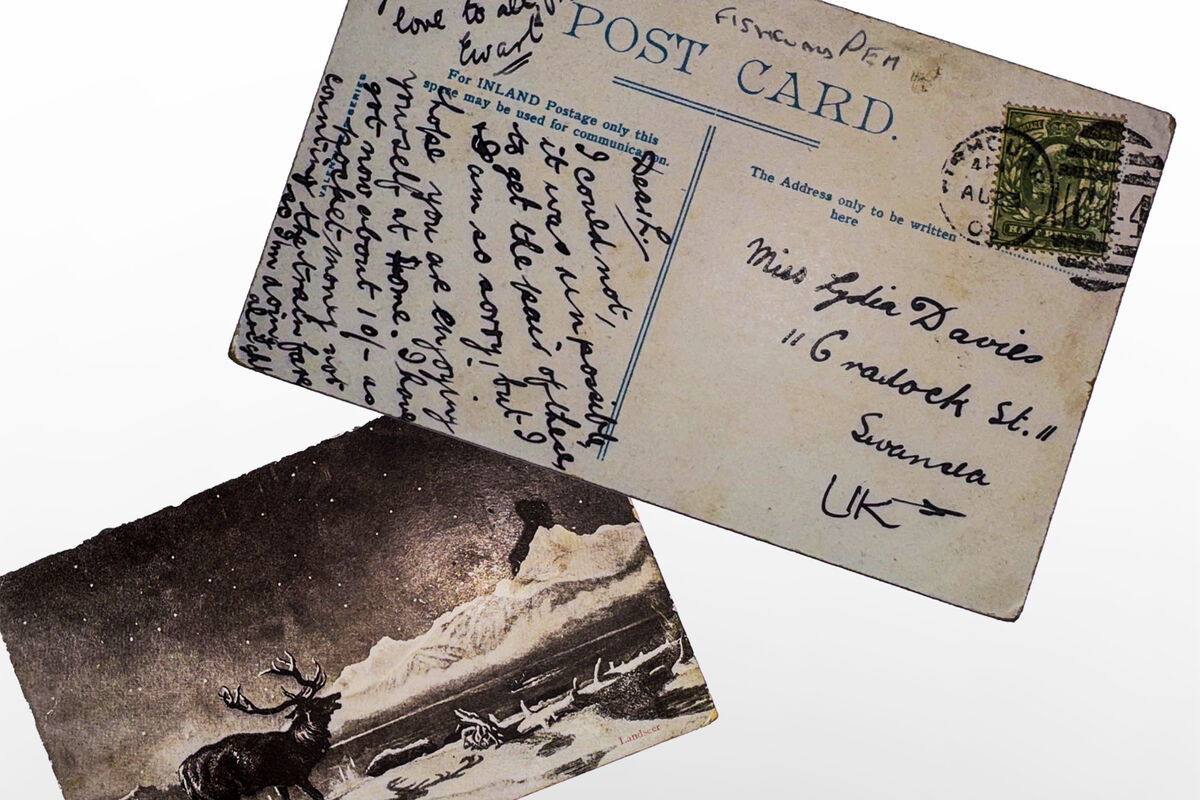 FISHGUARD PEM
POST CARD.
For INLAND Postage only this
space may be used for communication.
The Address only to be written
here
Miss Lydia Davies
"Cradock St."
Swansea
UK
Dear L.
I could not,
it was impossible,
to get the pair of these
I am so sorry, but I
hope you are enjoying
yourself at Home. I have
got now about 10/- as
pocket-money not
counting the train fare
so I'm doing
alright
love to all,
Ewart
SERIES
HALF
AU
Landseer